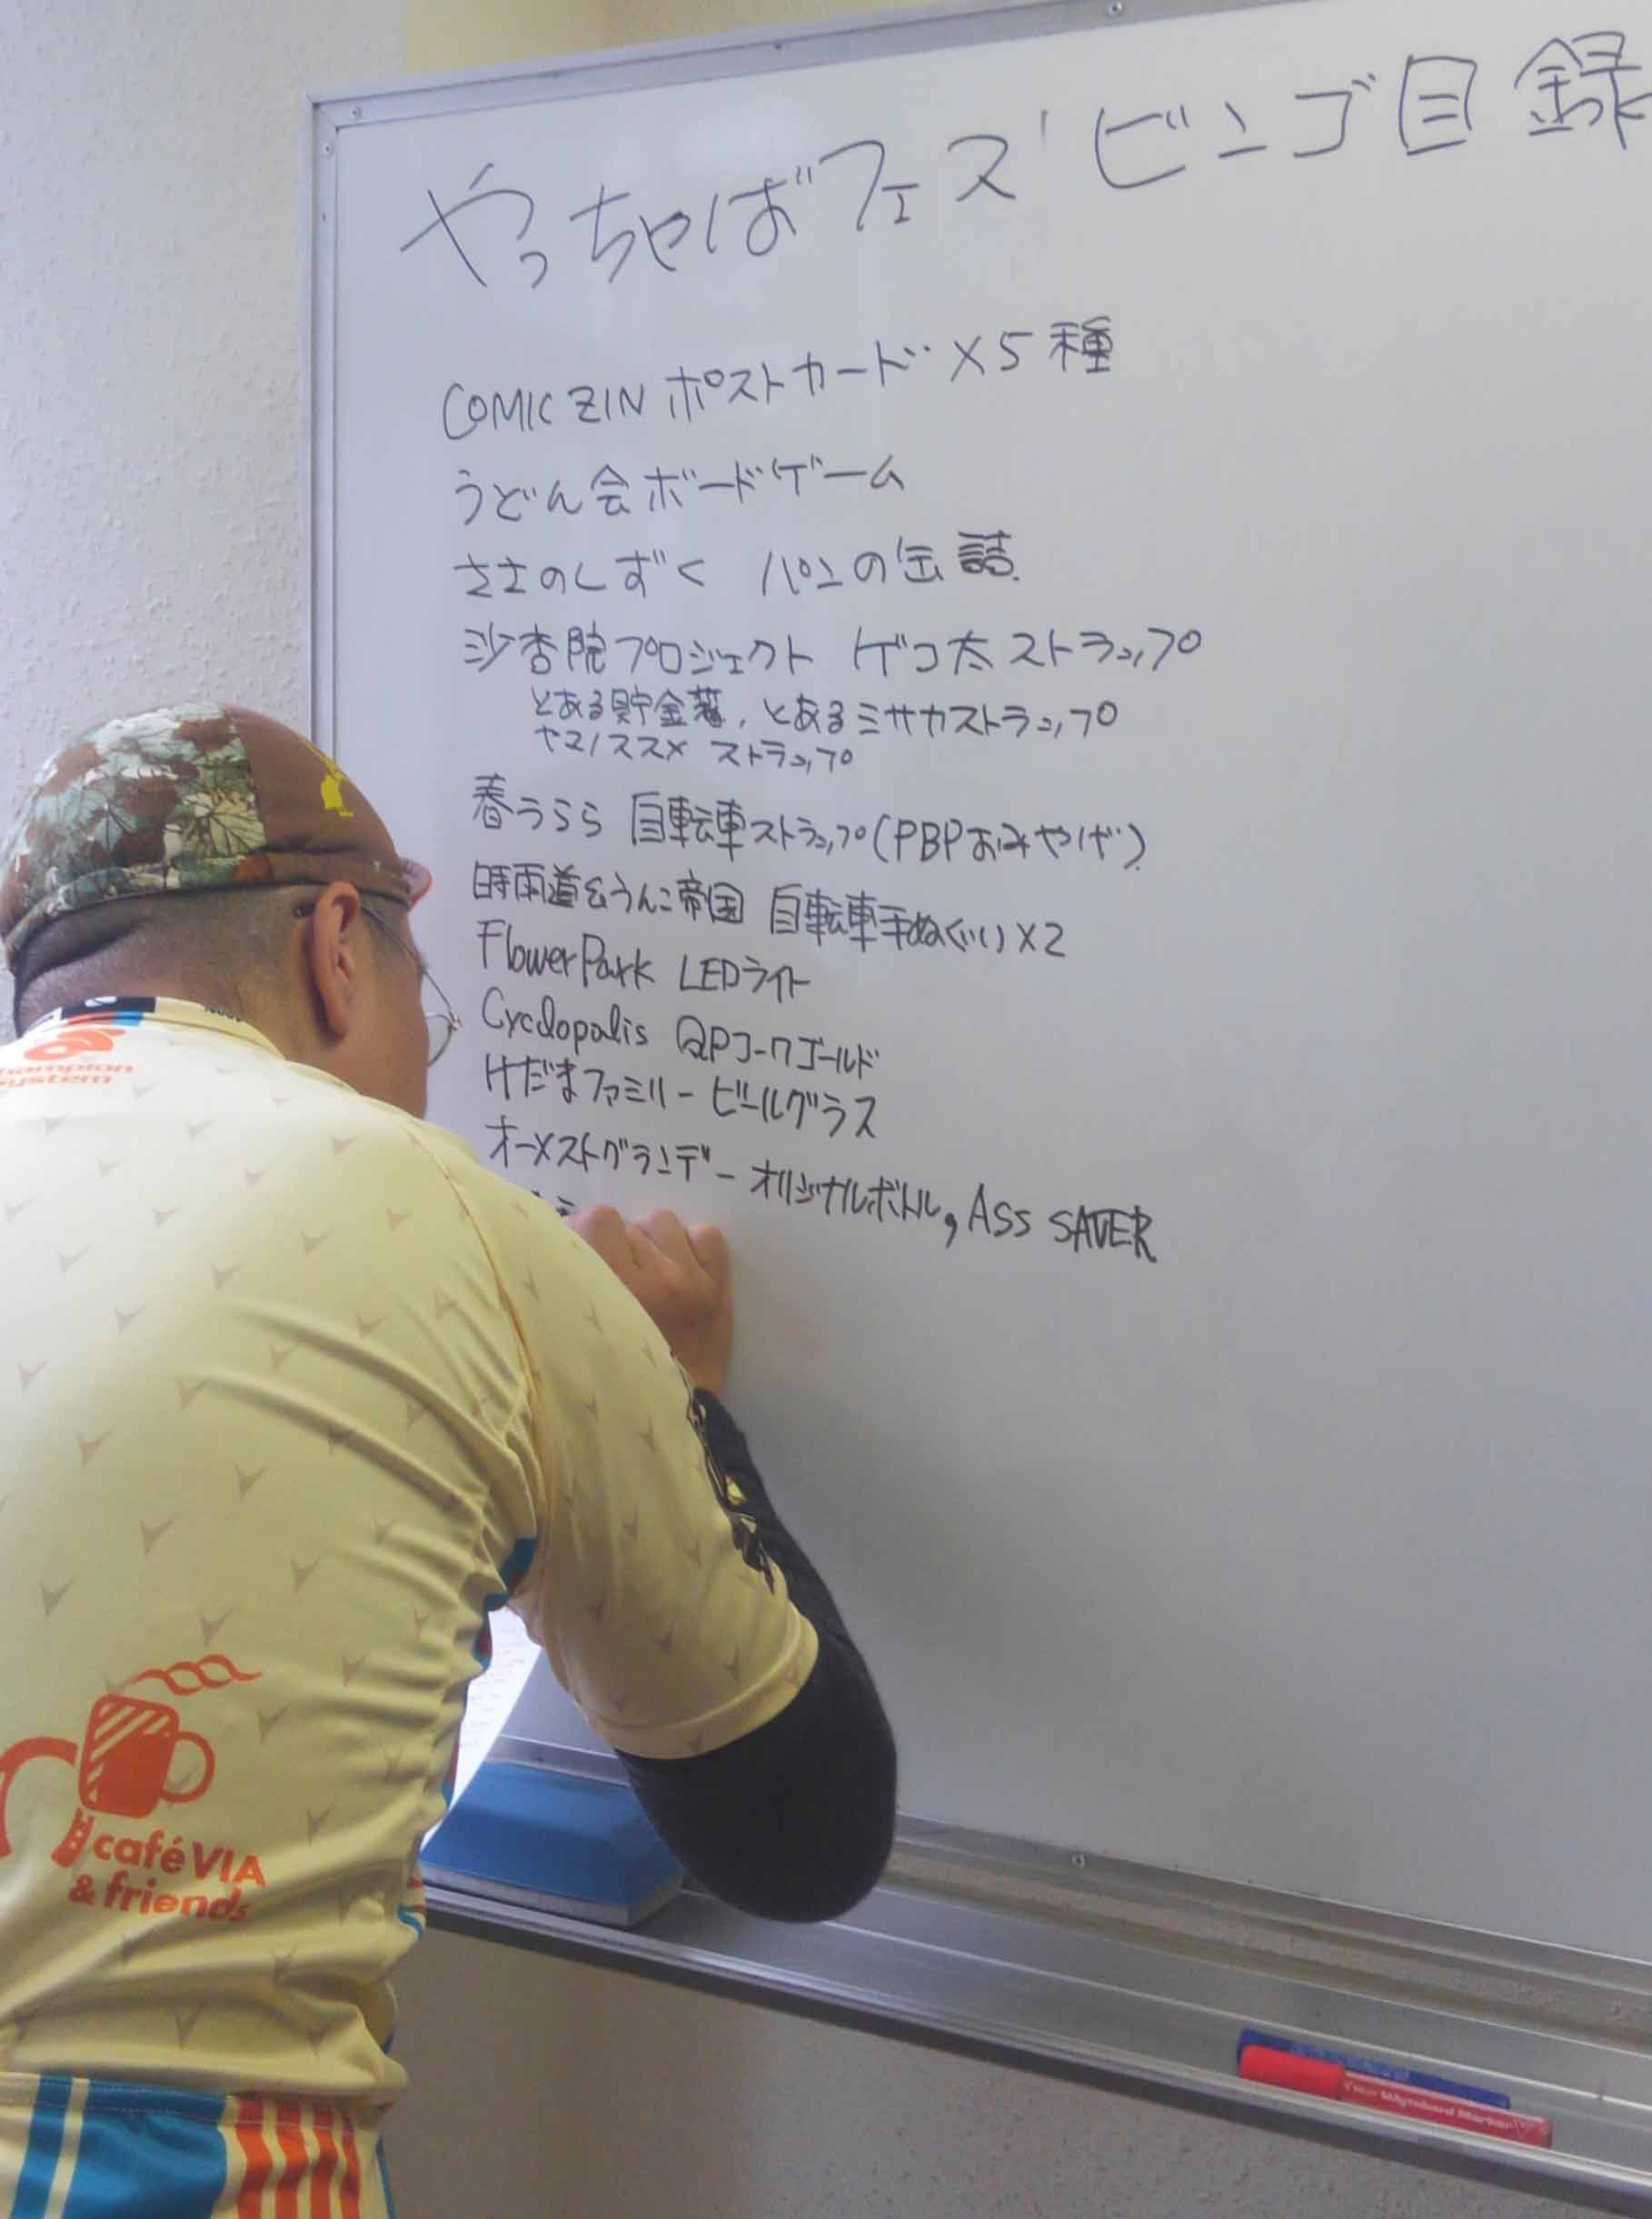 やっちゃばフェス ビンゴ目録
COMIC ZIN ポストカード ×5種
うどん会ボードゲーム
ささのしずく パンの缶詰
沙杏院プロジェクト ゲコ太ストラップ
とある貯金箱, とあるミサカストラップ
ヤマノススメ ストラップ
春うらら 自転車ストラップ(PBPおみやげ)
時雨道&うんこ帝国 自転車手ぬぐい×2
FlowerPark LEDライト
Cyclopolis QPコーワゴールド
けだまファミリー ビールグラス
オーメストグランデー オリジナルボトル, ASS SAVER
champion
system
caféVIA
& friends